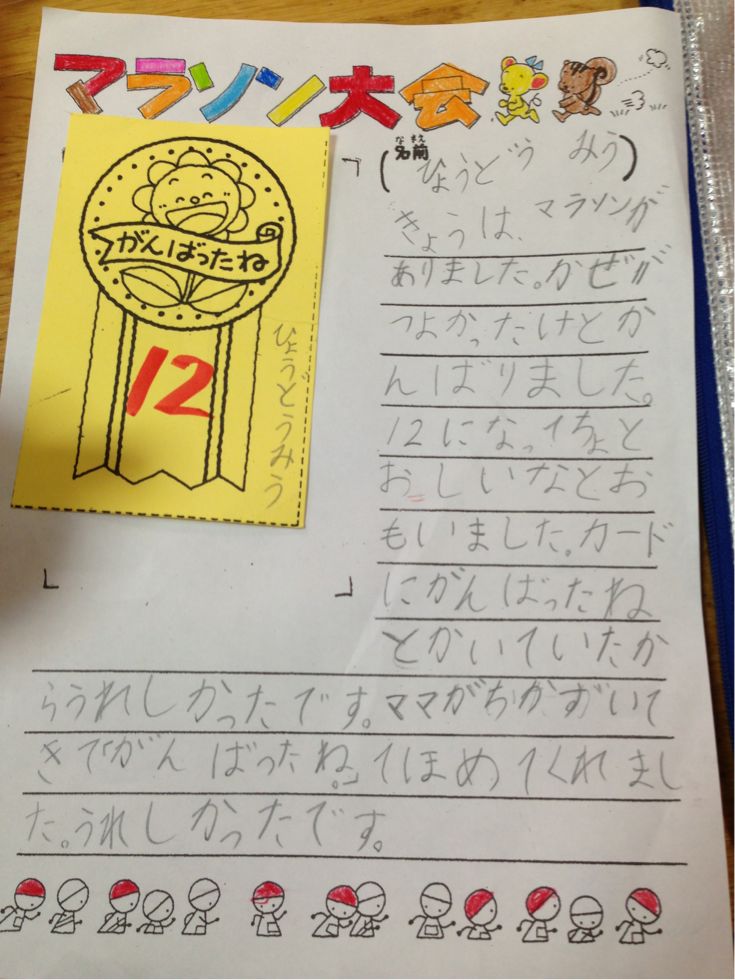 マラソン大会
なまえ
名前
(ひょうどう みう)
がんばったね
12
ひょうどうみう
きょうは、マラソンが
ありました。かぜが
つよかったけとか
んばりました。
12になってちょと
おしいなとお
もいました。カード
にがんばったね
とかいていたか
らうれしかったです。ママがちかずいて
きて「がんばったね。」てほめてくれまし
た。うれしかったです。